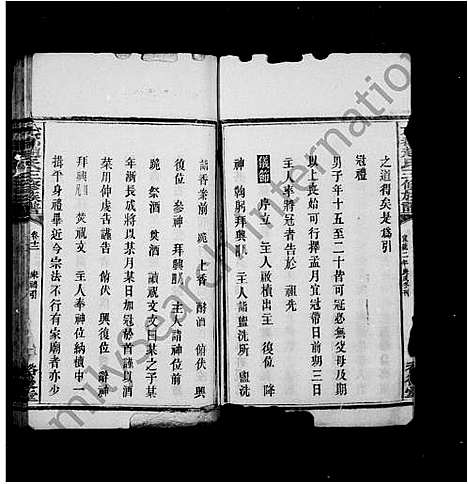 之道得矣是為引
冠禮
男子年十五至二十皆可冠必無父母及期
以上喪始可行擇孟月宜冠帶日前期三日
主人率將冠者告於　祖先
儀節　序立　主人啟櫝出主　復位　降
神　詣盥洗所　盥洗
詣香案前　跪　上香　酹酒　俯伏　興
復位　參神　拜興　主人詣神位前
跪　奠酒　讀祝文　文曰某之子某
年漸長成將以某月某日加冠於首謹以酒
菜用伸虔告謹告　俯伏　興　復位　辭神
拜興　焚祝文　主人奉神位納櫝中
揖平身禮畢近今宗法不行有家廟者亦少
卷十二
FamilySearch International